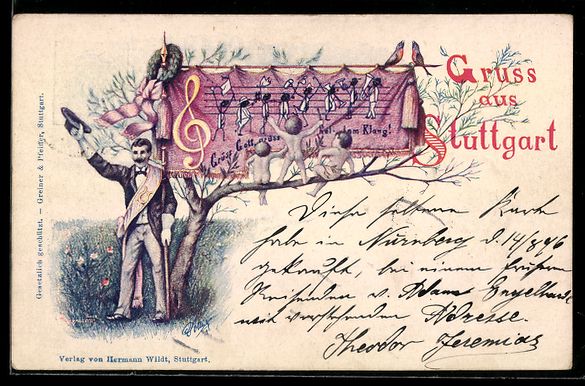 Gruss
aus
Stuttgart
Grüss Gott, mit hellem Klang!
Gesetzlich geschützt. — Greiner & Pfeiffer, Stuttgart.
Diese seltene Karte
habe in Nürnberg d. 14/8 96
gekauft, bei einem
Reisenden v. Adam Engelhardt
mit Adresse.
Theodor Jeremias
Verlag von Hermann Wildt, Stuttgart.